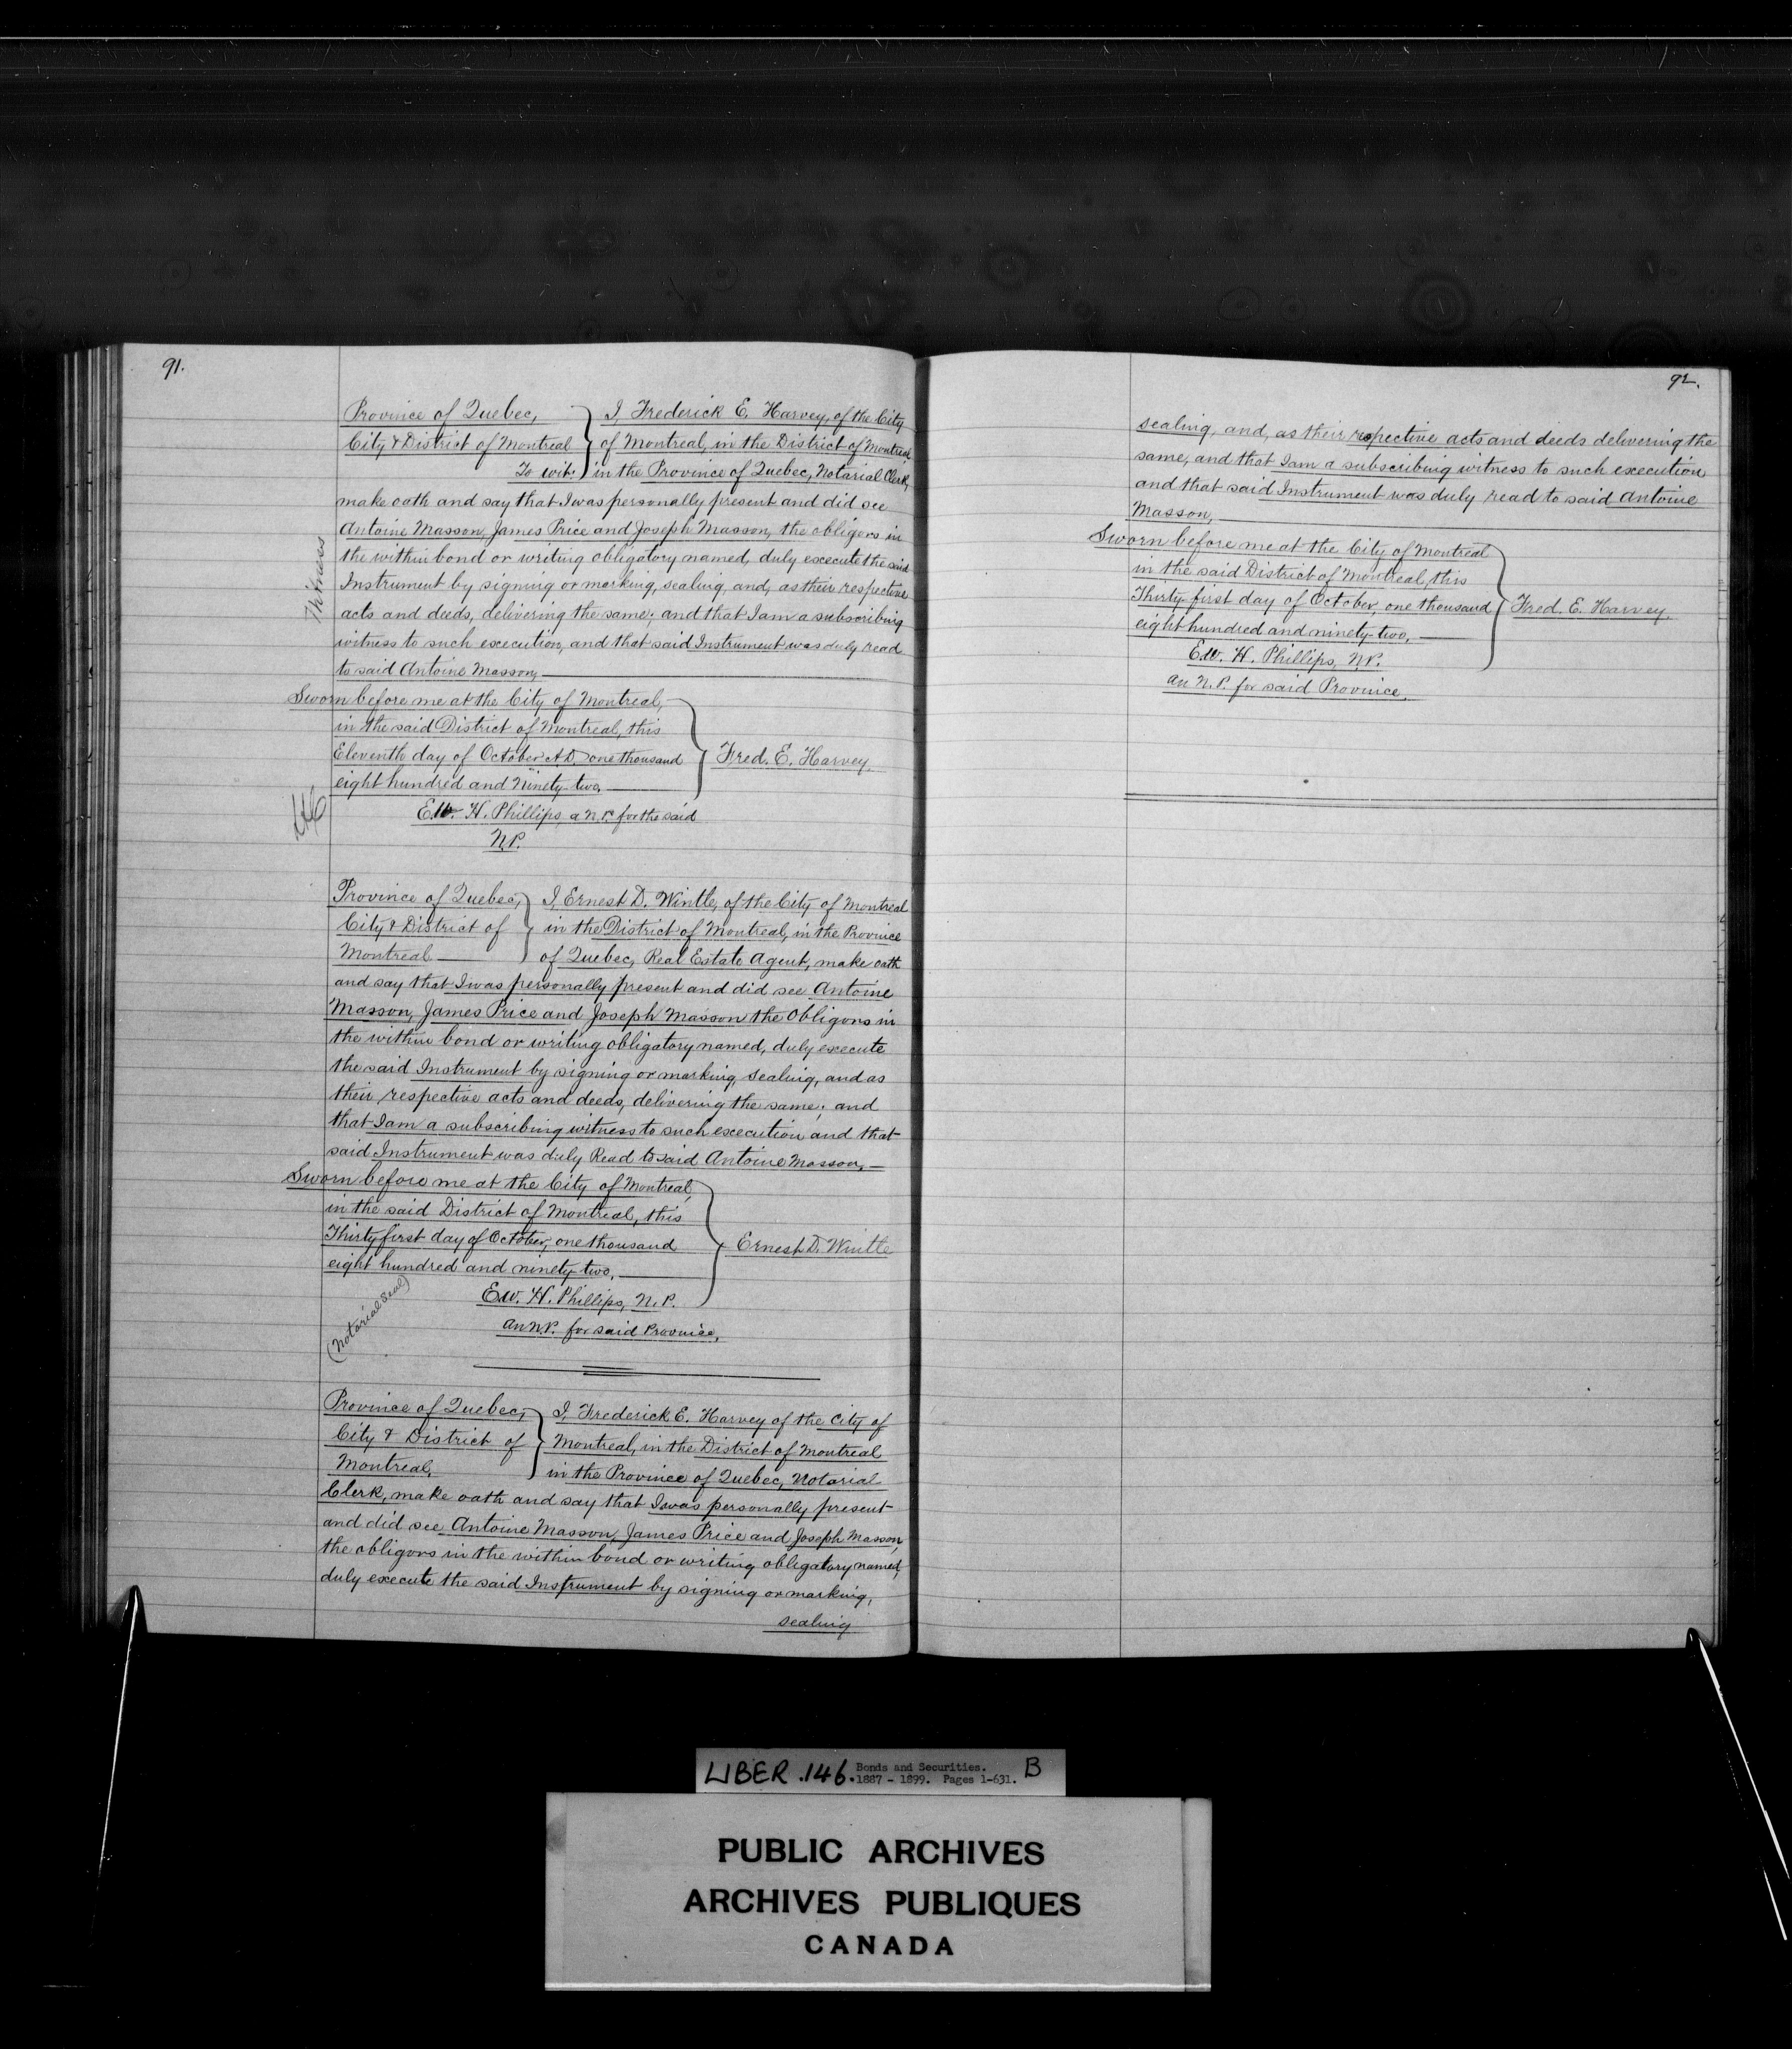 91.
Province of Quebec, I, Frederick E. Harvey, of the City
City & District of Montreal of Montreal, in the District of Montreal
To wit: in the Province of Quebec, Notarial Clerk,
make oath and say that I was personally present and did see
Antoine Masson, James Price and Joseph Masson, the obligors in
the within bond or writing obligatory named, duly execute the said
Instrument by signing or marking, sealing, and, as their respective
acts and deeds, delivering the same; and that I am a subscribing
witness to such execution, and that said Instrument was duly read
to said Antoine Masson,
Witness
Sworn before me at the City of Montreal,
in the said District of Montreal, this
Eleventh day of October A.D. one thousand Fred. E. Harvey.
eight hundred and Ninety-two,
Ew. H. Phillips, a N.P. for the said
N.P.
Province of Quebec, I, Ernest D. Wintle, of the City of Montreal
City & District of in the District of Montreal, in the Province
Montreal of Quebec, Real Estate Agent, make oath
and say that I was personally present and did see Antoine
Masson, James Price and Joseph Masson the Obligors in
the within bond or writing obligatory named, duly execute
the said Instrument by signing or marking, sealing, and as
their respective acts and deeds, delivering the same; and
that I am a subscribing witness to such execution and that
said Instrument was duly Read to said Antoine Masson,
Sworn before me at the City of Montreal,
in the said District of Montreal, this
Thirty first day of October, one thousand Ernest D. Wintle
eight hundred and ninety-two,
Ew. H. Phillips, N.P.
An N.P. for said Province,
(Notarial Seal)
Province of Quebec, I, Frederick E. Harvey of the City of
City & District of Montreal, in the District of Montreal
Montreal, in the Province of Quebec, Notarial
Clerk, make oath and say that I was personally present
and did see Antoine Masson, James Price and Joseph Masson,
the obligors in the within bond or writing obligatory named,
duly execute the said Instrument by signing or marking,
sealing
92.
sealing, and, as their respective acts and deeds delivering the
same, and that I am a subscribing witness to such execution
and that said Instrument was duly read to said Antoine
Masson,
Sworn before me at the City of Montreal
in the said District of Montreal, this
Thirty-first day of October, one thousand Fred. E. Harvey.
eight hundred and ninety-two,
Ew. H. Phillips, N.P.
An N.P. for said Province,
LIBER .146. Bonds and Securities. B
1887 - 1899. Pages 1-631.
PUBLIC ARCHIVES
ARCHIVES PUBLIQUES
CANADA